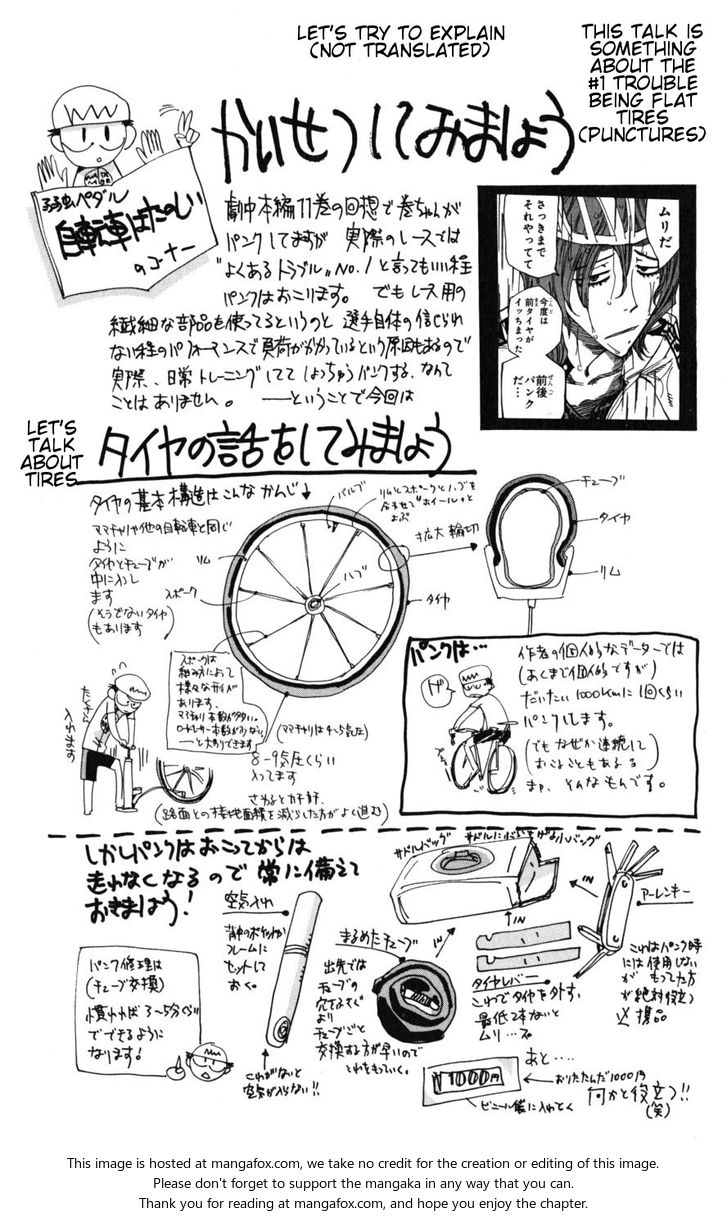 LET'S TRY TO EXPLAIN
(NOT TRANSLATED)
THIS TALK IS
SOMETHING
ABOUT THE
#1 TROUBLE
BEING FLAT
TIRES
(PUNCTURES)
かいせつしてみましょう
弱虫ペダル
自転車はたのしい
のコーナー
劇中本編11巻の回想で巻ちゃんが
パンクしてますが 実際のレースでは
"よくあるトラブル" No.1と言ってもいい程
パンクはおこります。 でもレース用の
繊細な部品を使ってるというのと 選手自体の信じられ
ない程のパフォーマンスで負荷がかかっているという原因もあるので
実際、日常トレーニングしてて しょっちゅうパンクする、なんて
ことはありません。 ——ということで今回は
ムリだ
さっきまで
それやってて
今度は
前タイヤが
イッちまった
前後
パンク
だ…
LET'S
TALK
ABOUT
TIRES
タイヤの話をしてみましょう
タイヤの基本構造はこんなかんじ↓
ママチャリや他の自転車と同じ
ように
タイヤとチューブが
中に入し
ます
(そうでないタイヤ
もあります)
バルブ
リムとスポークとハブを
合わせて"ホイール"と
よぶ
リム
スポーク
ハブ
タイヤ
拡大 輪切
チューブ
タイヤ
リム
スポークは
組み方によって
様々なタイプが
あります。
ママチャリ 本数が多い。
ロードレーサー 本数が少ない
——と大別できます
(ママチャリは4〜5気圧)
8-9気圧くらい
入ってます
さわるとカチカチ
(路面との接地面積を減らした方がよく進む)
たくさん
入れます
パンクは…
作者の個人的なデーターでは
(あくまで個人的ですが)
だいたい1000kmに1回くらい
パンクします。
(でもなぜか連続して
おこることもある)
まァ、そんなもんです。
しかしパンクはおこってからは
走れなくなるので 常に備えて
おきましょう!
パンク修理は
(チューブ交換)
慣れれば3〜5分ぐらい
でできるように
なります!
空気入れ
背中のポケットか
フレームに
セットして
おく。
これがないと
空気が入らない!!
まるめたチューブ
出先では
チューブの
穴をふさぐ
より
チューブごと
交換する方が早いので
これをもっていく。
IN
サドルバッグ
サドルにぶらさげる小バッグ
IN
タイヤレバー
これでタイヤを外す。
最低2本ないと
ムリ…ス
IN
アーレンキー
これはパンク時
には使用しない
が もってた方
が絶対役立つ
必携品
あと….
¥1000円
おりたたんだ1000円
何かと役立つ!!
(笑)
ビニール袋に入れとく
This image is hosted at mangafox.com, we take no credit for the creation or editing of this image.
Please don't forget to support the mangaka in any way that you can.
Thank you for reading at mangafox.com, and hope you enjoy the chapter.